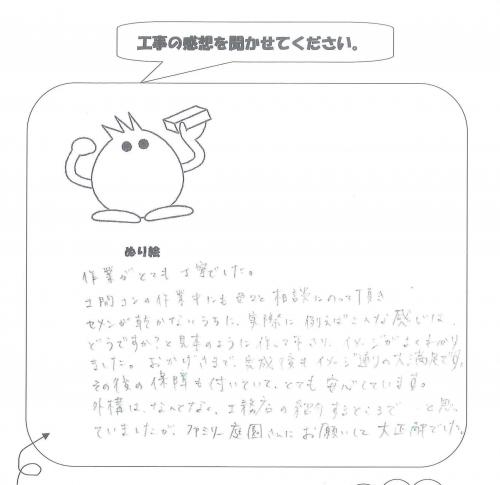 工事の感想を聞かせてください。
ぬり絵
作業がとても丁寧でした。
土間コンの作業中にも色々と相談にのって頂き
セメンが乾かないうちに、実際に例えばこんな感じは、
どうですか?と見本のように作って下さり、イメージがよくわかり
ました。おかげさまで、完成後もイメージ通りの大満足です。
その後の保障も付いていて、とても安心しています。
外構は、なんとなく、工務店の紹介するところで と思っ
ていましたが、ファミリー庭園さんにお願いして大正解でした。